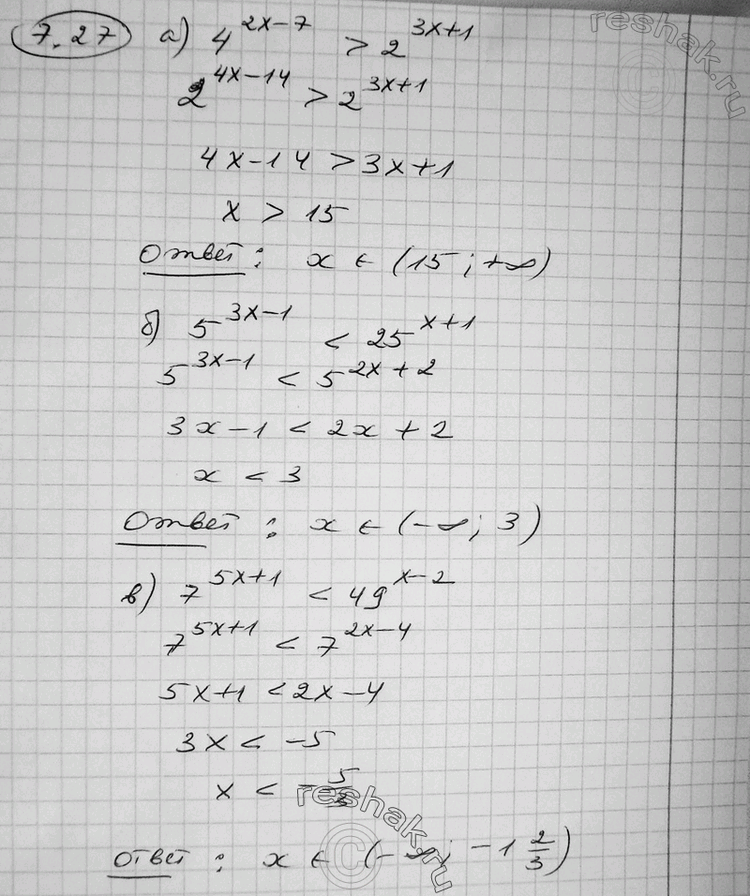 7.27 а) 4^{2x-7} > 2^{3x+1}
2^{4x-14} > 2^{3x+1}
4x-14 > 3x+1
x > 15
Ответ: x ∈ (15; +∞)
б) 5^{3x-1} < 25^{x+1}
5^{3x-1} < 5^{2x+2}
3x-1 < 2x+2
x < 3
Ответ: x ∈ (-∞; 3)
в) 7^{5x+1} < 49^{x-2}
7^{5x+1} < 7^{2x-4}
5x+1 < 2x-4
3x < -5
x < -5/3
Ответ: x ∈ (-∞; -1 2/3)
reshak.ru
reshak.ru